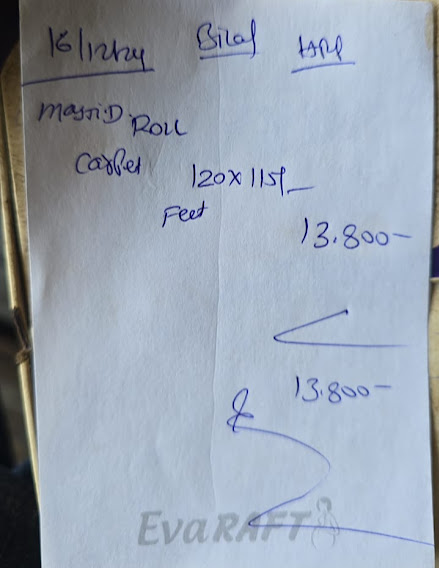 16/12/24 Bilal
Masji.D. Roll
Carpet 120x115/-
Feet
13.800-
13.800-
EvaRAFT